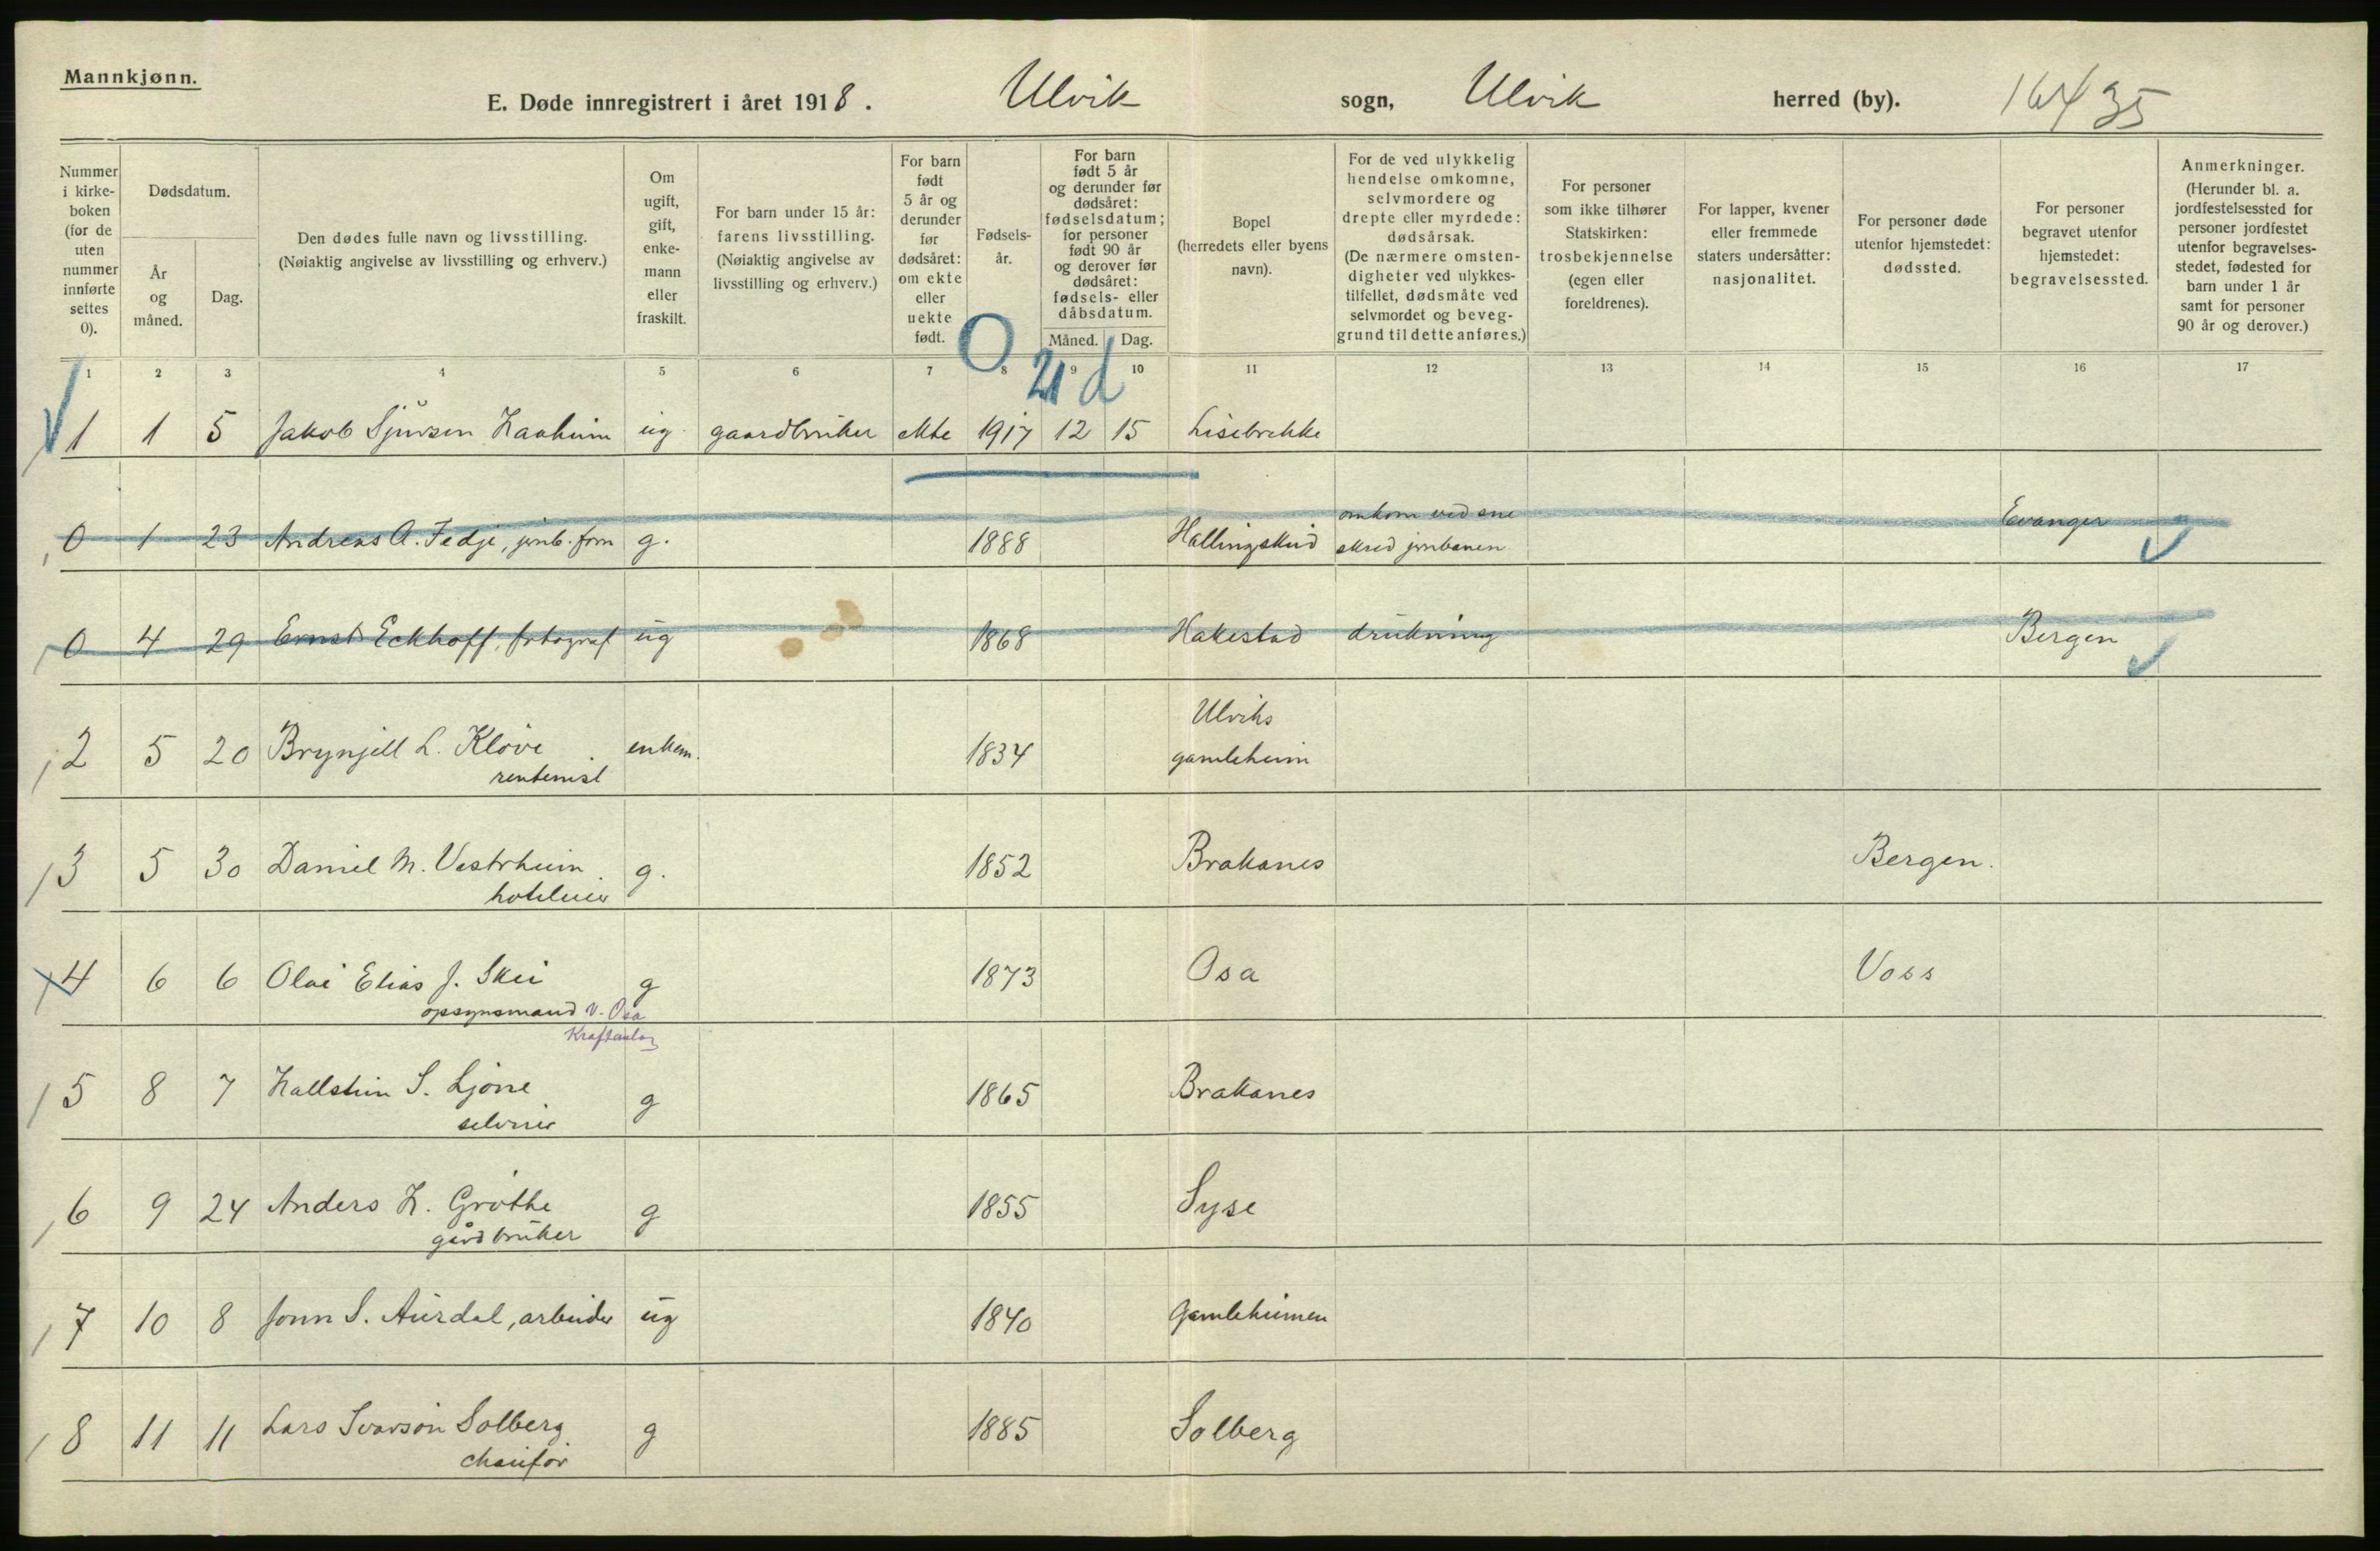 Mannkjønn.
E. Døde innregistrert i året 1918. Ulvik sogn, Ulvik herred (by). 16435
Nummer i kirke-boken (for de uten nummer innførte settes 0).
Dødsdatum.
År og måned.
Dag.
Den dødes fulle navn og livsstilling.
(Nøiaktig angivelse av livsstilling og erhverv.)
Om ugift, gift, enke-mann eller fraskilt.
For barn under 15 år: farens livsstilling. (Nøiaktig angivelse av livsstilling og erhverv.)
For barn født 5 år og derunder før dødsåret: om ekte eller uekte født.
Fødsels-år.
For barn født 5 år og derunder før dødsåret: fødselsdatum; for personer født 90 år og derover før dødsåret: fødsels- eller dåbsdatum.
Måned. Dag.
Bopel (herredets eller byens navn).
For de ved ulykkelig hendelse omkomne, selvmordere og drepte eller myrdede: dødsårsak. (De nærmere omsten-digheter ved ulykkes-tilfellet, dødsmåte ved selvmordet og beveg-grund til dette anføres.)
For personer som ikke tilhører Statskirken: trosbekjennelse (egen eller foreldrenes).
For lapper, kvener eller fremmede staters undersåtter: nasjonalitet.
For personer døde utenfor hjemstedet: dødssted.
For personer begravet utenfor hjemstedet: begravelsessted.
Anmerkninger. (Herunder bl. a. jordfestelsessted for personer jordfestet utenfor begravelses-stedet, fødested for barn under 1 år samt for personer 90 år og derover.)
0 21 d
1 2 3 4 5 6 7 8 9 10 11 12 13 14 15 16 17
1 1 5 Jakob Sjursen Haaheim ug. gaardbruker ekte 1917 12 15 Lisebrekke
0 1 23 Andreas A. Fedje, jernb. form g. 1888 Hallingskeid omkom ved sne Evanger
skred jernbanen
0 4 29 Ernst Eckhoff, fotograf ug 1868 Hakestad drukning Bergen
2 5 20 Brynjell L. Kløve enkem. 1834 Ulviks
rentenist gamleheim
3 5 30 Daniel M. Vestrheim g. 1852 Brakanes Bergen.
hoteleier
4 6 6 Olai Elias J. Skei g 1873 Osa Voss
opsynsmand v. Osa
Kraftanlæg
5 8 7 Hallstein S. Ljone g 1865 Brakanes
selveier
6 9 24 Anders H. Grøthe g 1855 Syse
gårdbruker
7 10 8 Jonn S. Aurdal, arbeider ug 1840 Gamleheimen
8 11 11 Lars Ivarson Solberg g 1885 Solberg
chaufør